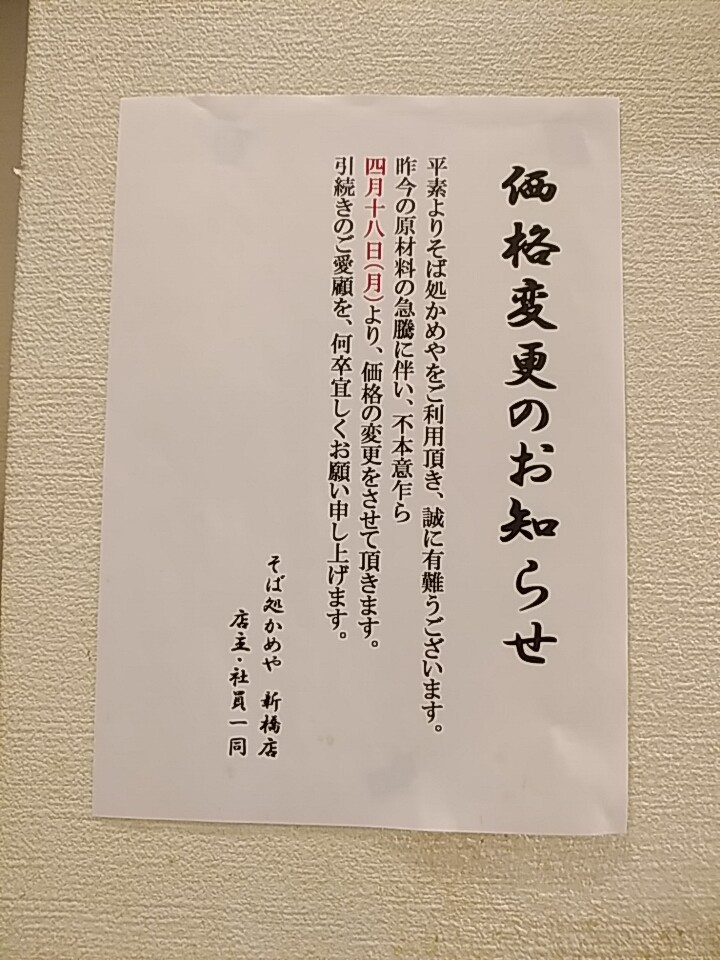 価格変更のお知らせ
平素よりそば処かめやをご利用頂き、誠に有難うございます。
昨今の原材料の急騰に伴い、不本意乍ら
四月十八日(月)より、価格の変更をさせて頂きます。
引続きのご愛顧を、何卒宜しくお願い申し上げます。
そば処かめや 新橋店
店主・社員一同